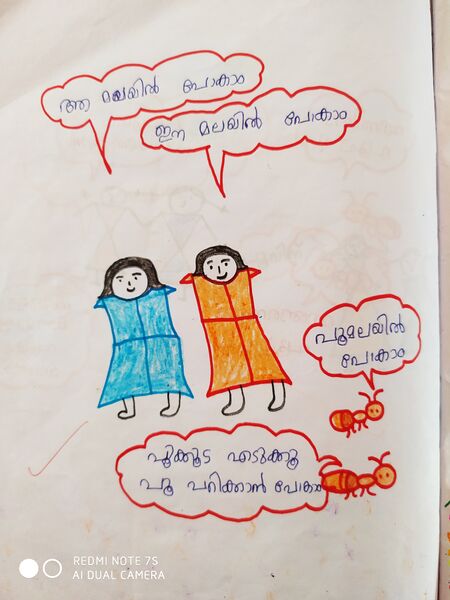 ആ മലയിൽ പോകാം
ഈ മലയിൽ പോകാം
പൂമലയിൽ
പോകാം
പൂക്കൂട എടുക്കൂ
പൂ പറിക്കാൻ പോകാം
REDMI NOTE 7S
AI DUAL CAMERA